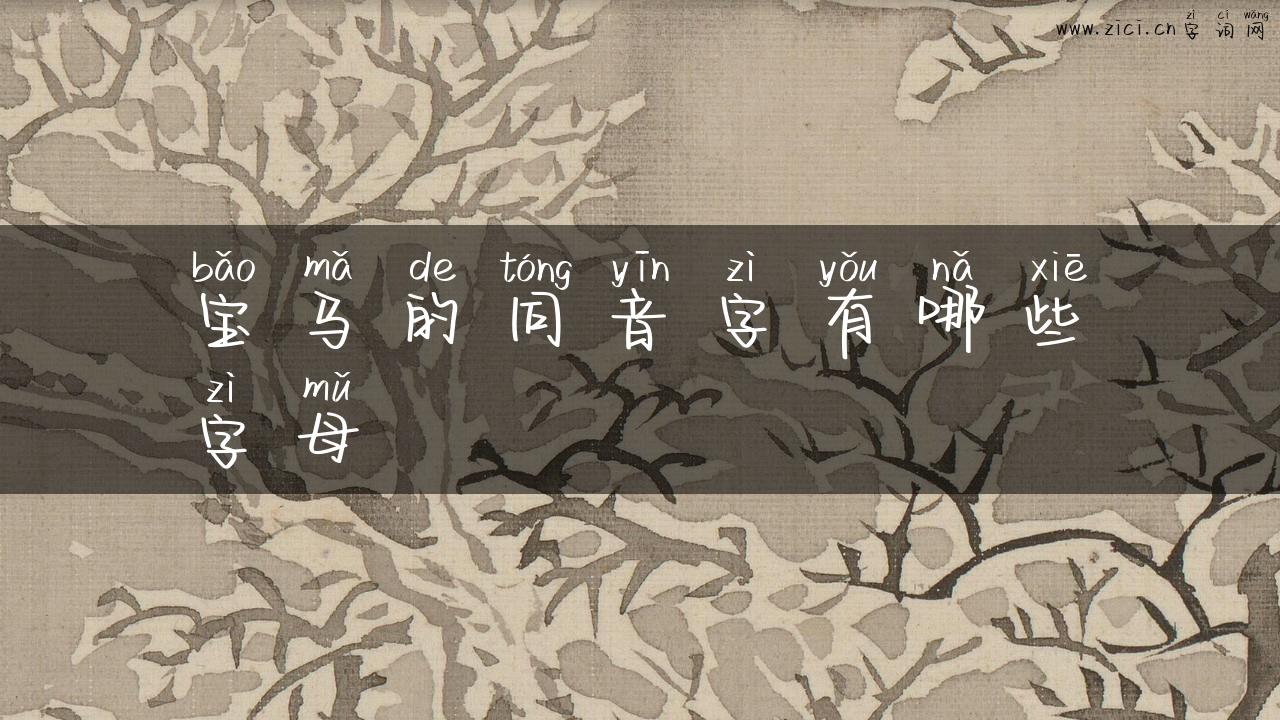 zì cí wǎng
www.zici.cn字词网
bǎo mǎ de tóng yīn zì yǒu nǎ xiē
宝马的同音字有哪些
zì mǔ
字母